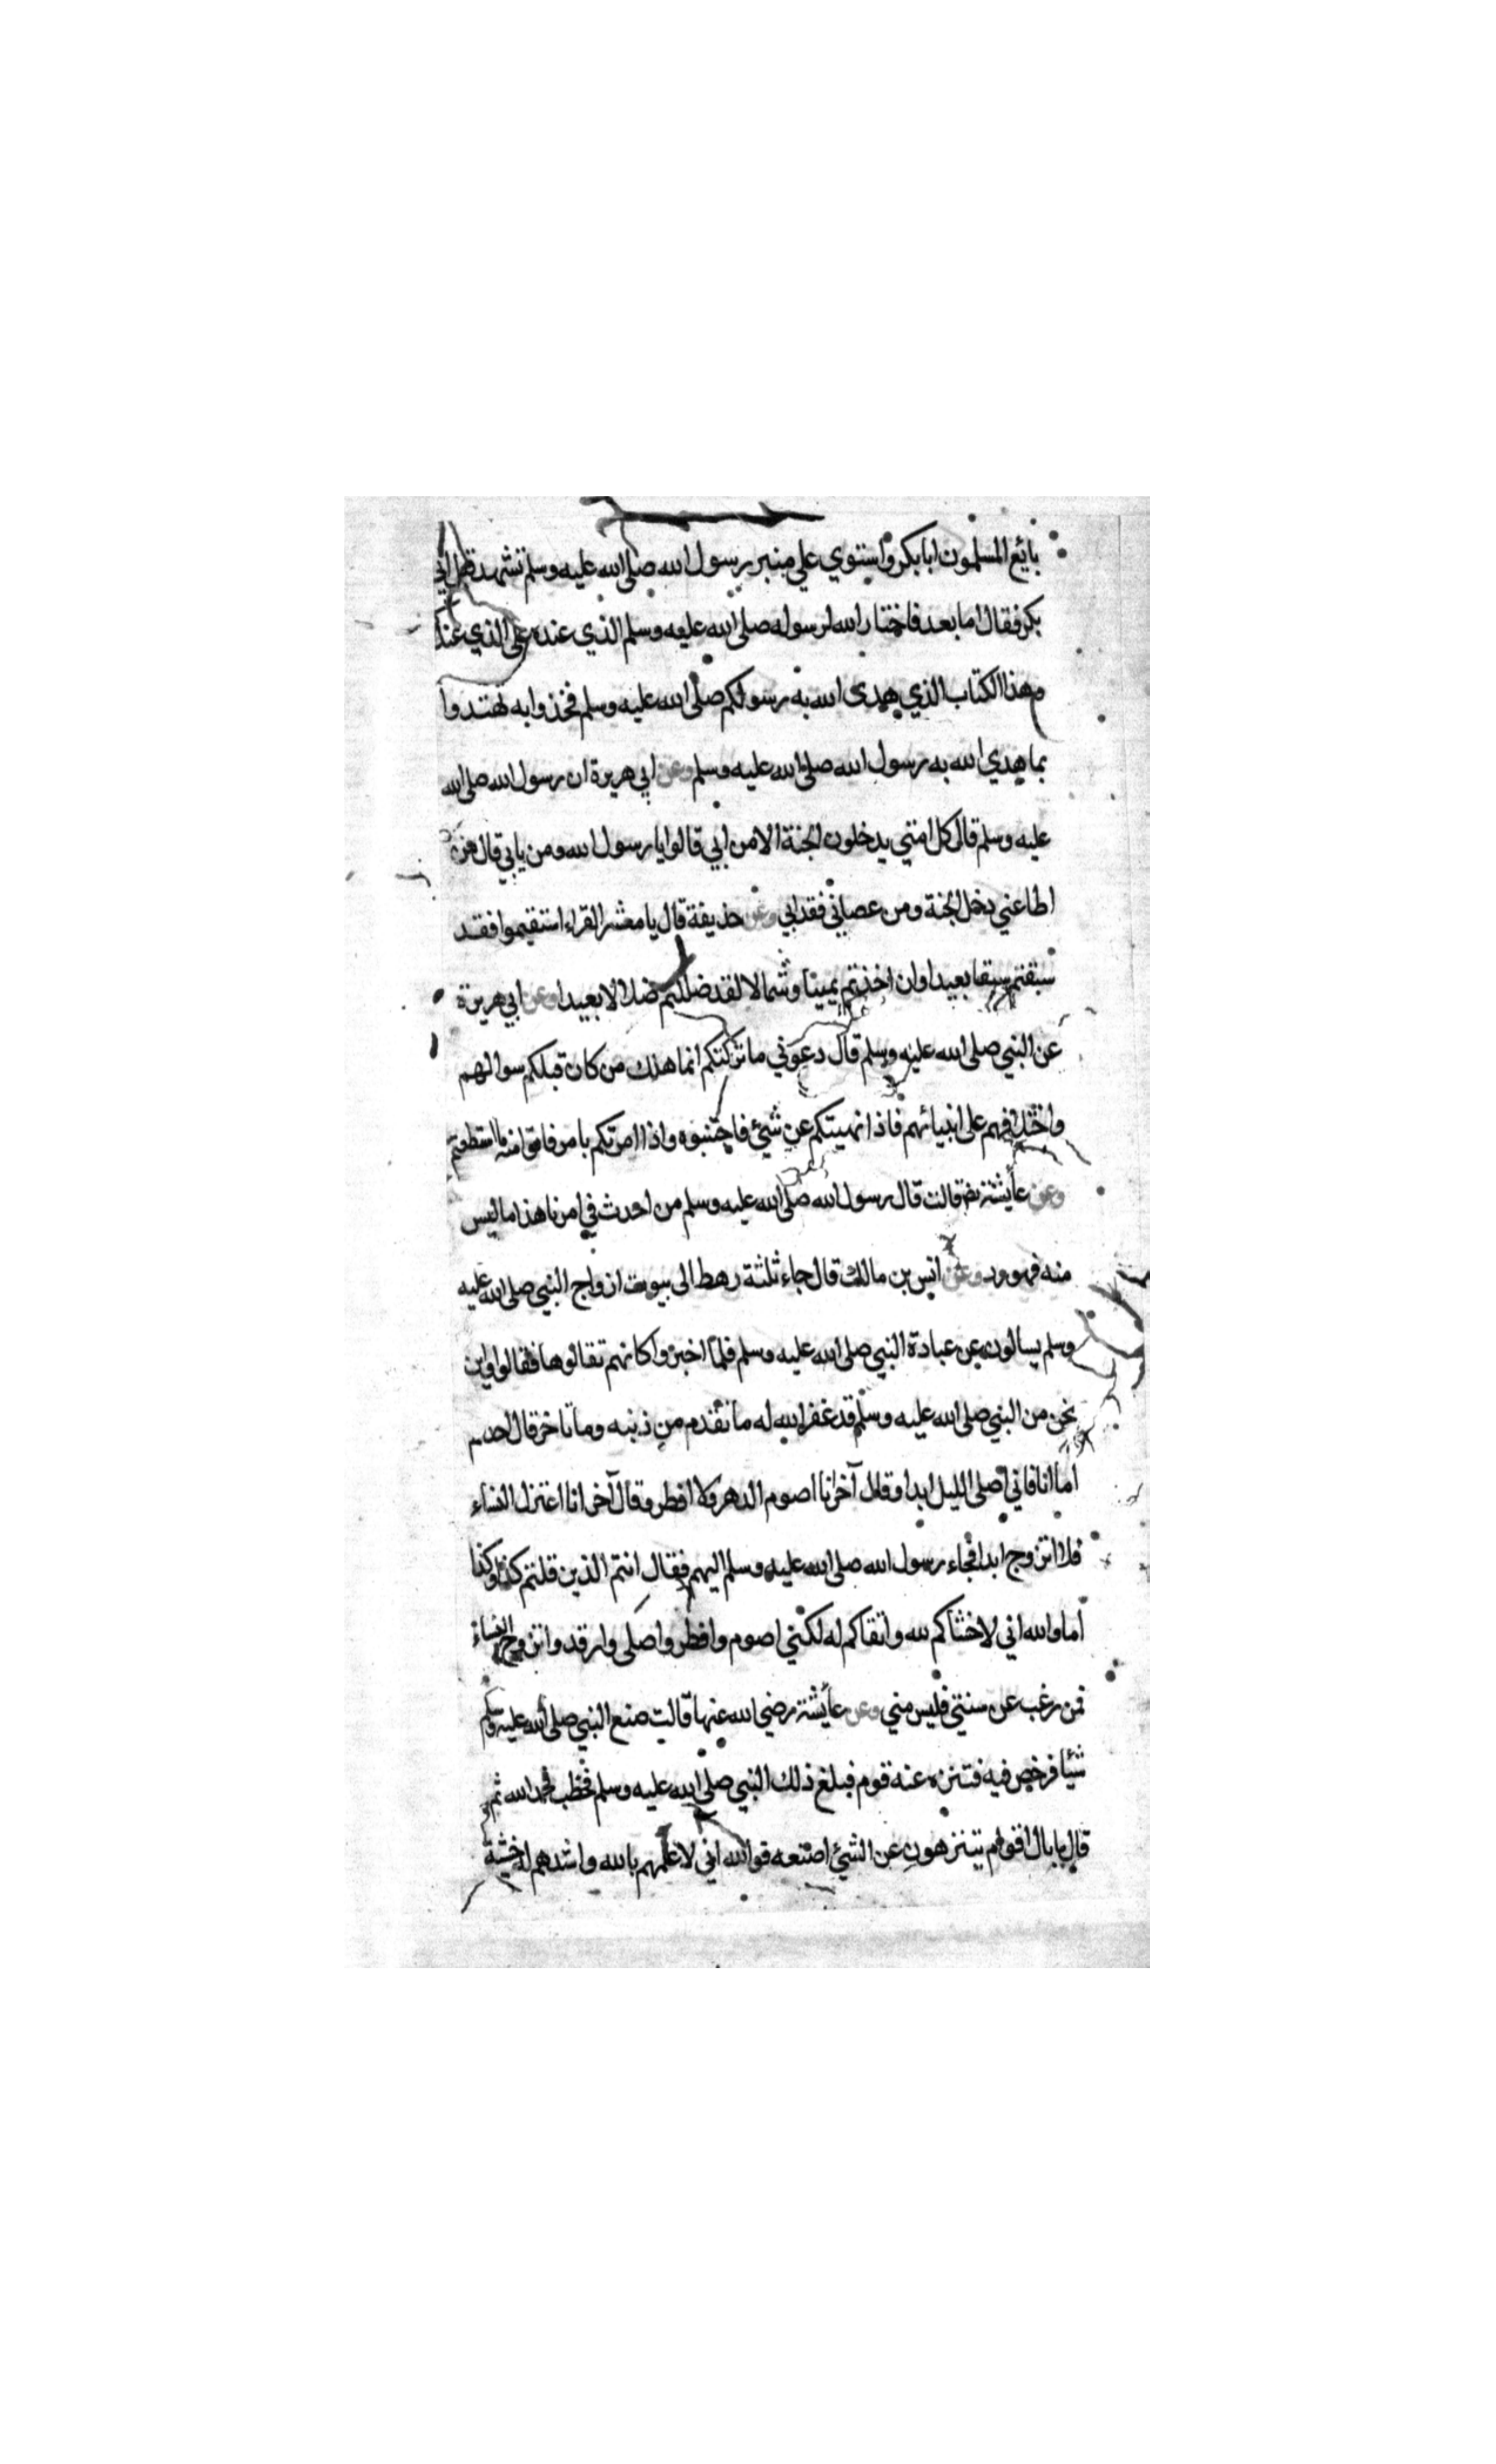 بايع المسلمون ابابكر واستوي علي منبر رسول الله صلى الله عليه وسلم تشهد قبل ابي
بكر فقال اما بعد فاختار الله لرسوله صلى الله عليه وسلم الذي عنده على الذي عندكم
وهذا الكتاب الذي هدى الله به رسولكم صلى الله عليه وسلم فخذوا به تهتدوا
بما هدي الله به رسول الله صلى الله عليه وسلم وعن ابي هريرة ان رسول الله صلى الله
عليه وسلم قال كل امتي يدخلون الجنة الا من ابي قالوا يا رسول الله ومن يابي قال من
اطاعني دخل الجنة ومن عصاني فقد ابي وعن حذيفة قال يا معشر القراء استقيموا فقد
سبقتم سبقا بعيدا وان اخذتم يمينا وشمالا لقد ضللتم ضلالا بعيدا وعن ابي هريرة
عن النبي صلى الله عليه وسلم قال دعوني ما تركتكم انما هلك من كان قبلكم سوالهم
واختلافهم على انبيائهم فاذا نهيتكم عن شيئ فاجتنبوه واذا امرتكم بامر فاتوا منه ما استطعتم
وعن عايشة رض قالت قال رسول الله صلى الله عليه وسلم من احدث في امرنا هذا ما ليس
منه فهو رد وعن انس بن مالك قال جاء ثلثة رهط الى بيوت ازواج النبي صلى الله عليه
وسلم يسالون عن عبادة النبي صلى الله عليه وسلم فلما اخبروا كانهم تقالوها فقالوا واين
نحن من النبي صلى الله عليه وسلم قد غفر الله له ما تقدم من ذنبه وما تاخر قال احدهم
اما انا فاني اصلى الليل ابدا وقال آخر انا اصوم الدهر ولا افطر وقال آخر انا اعتزل النساء
فلا اتزوج ابدا فجاء رسول الله صلى الله عليه وسلم اليهم فقال انتم الذين قلتم كذا وكذا
اما والله اني لاخشاكم لله واتقاكم له لكني اصوم وافطر واصلى وارقد واتزوج النساء
فمن رغب عن سنتي فليس مني وعن عايشة رضي الله عنها قالت صنع النبي صلى الله عليه وسلم
شيئا فرخص فيه فتنزه عنه قوم فبلغ ذلك النبي صلى الله عليه وسلم فخطب فحمد الله ثم
قال ما بال اقوام يتنزهون عن الشيئ اصنعه فوالله اني لاعلمهم بالله واشدهم له خشية